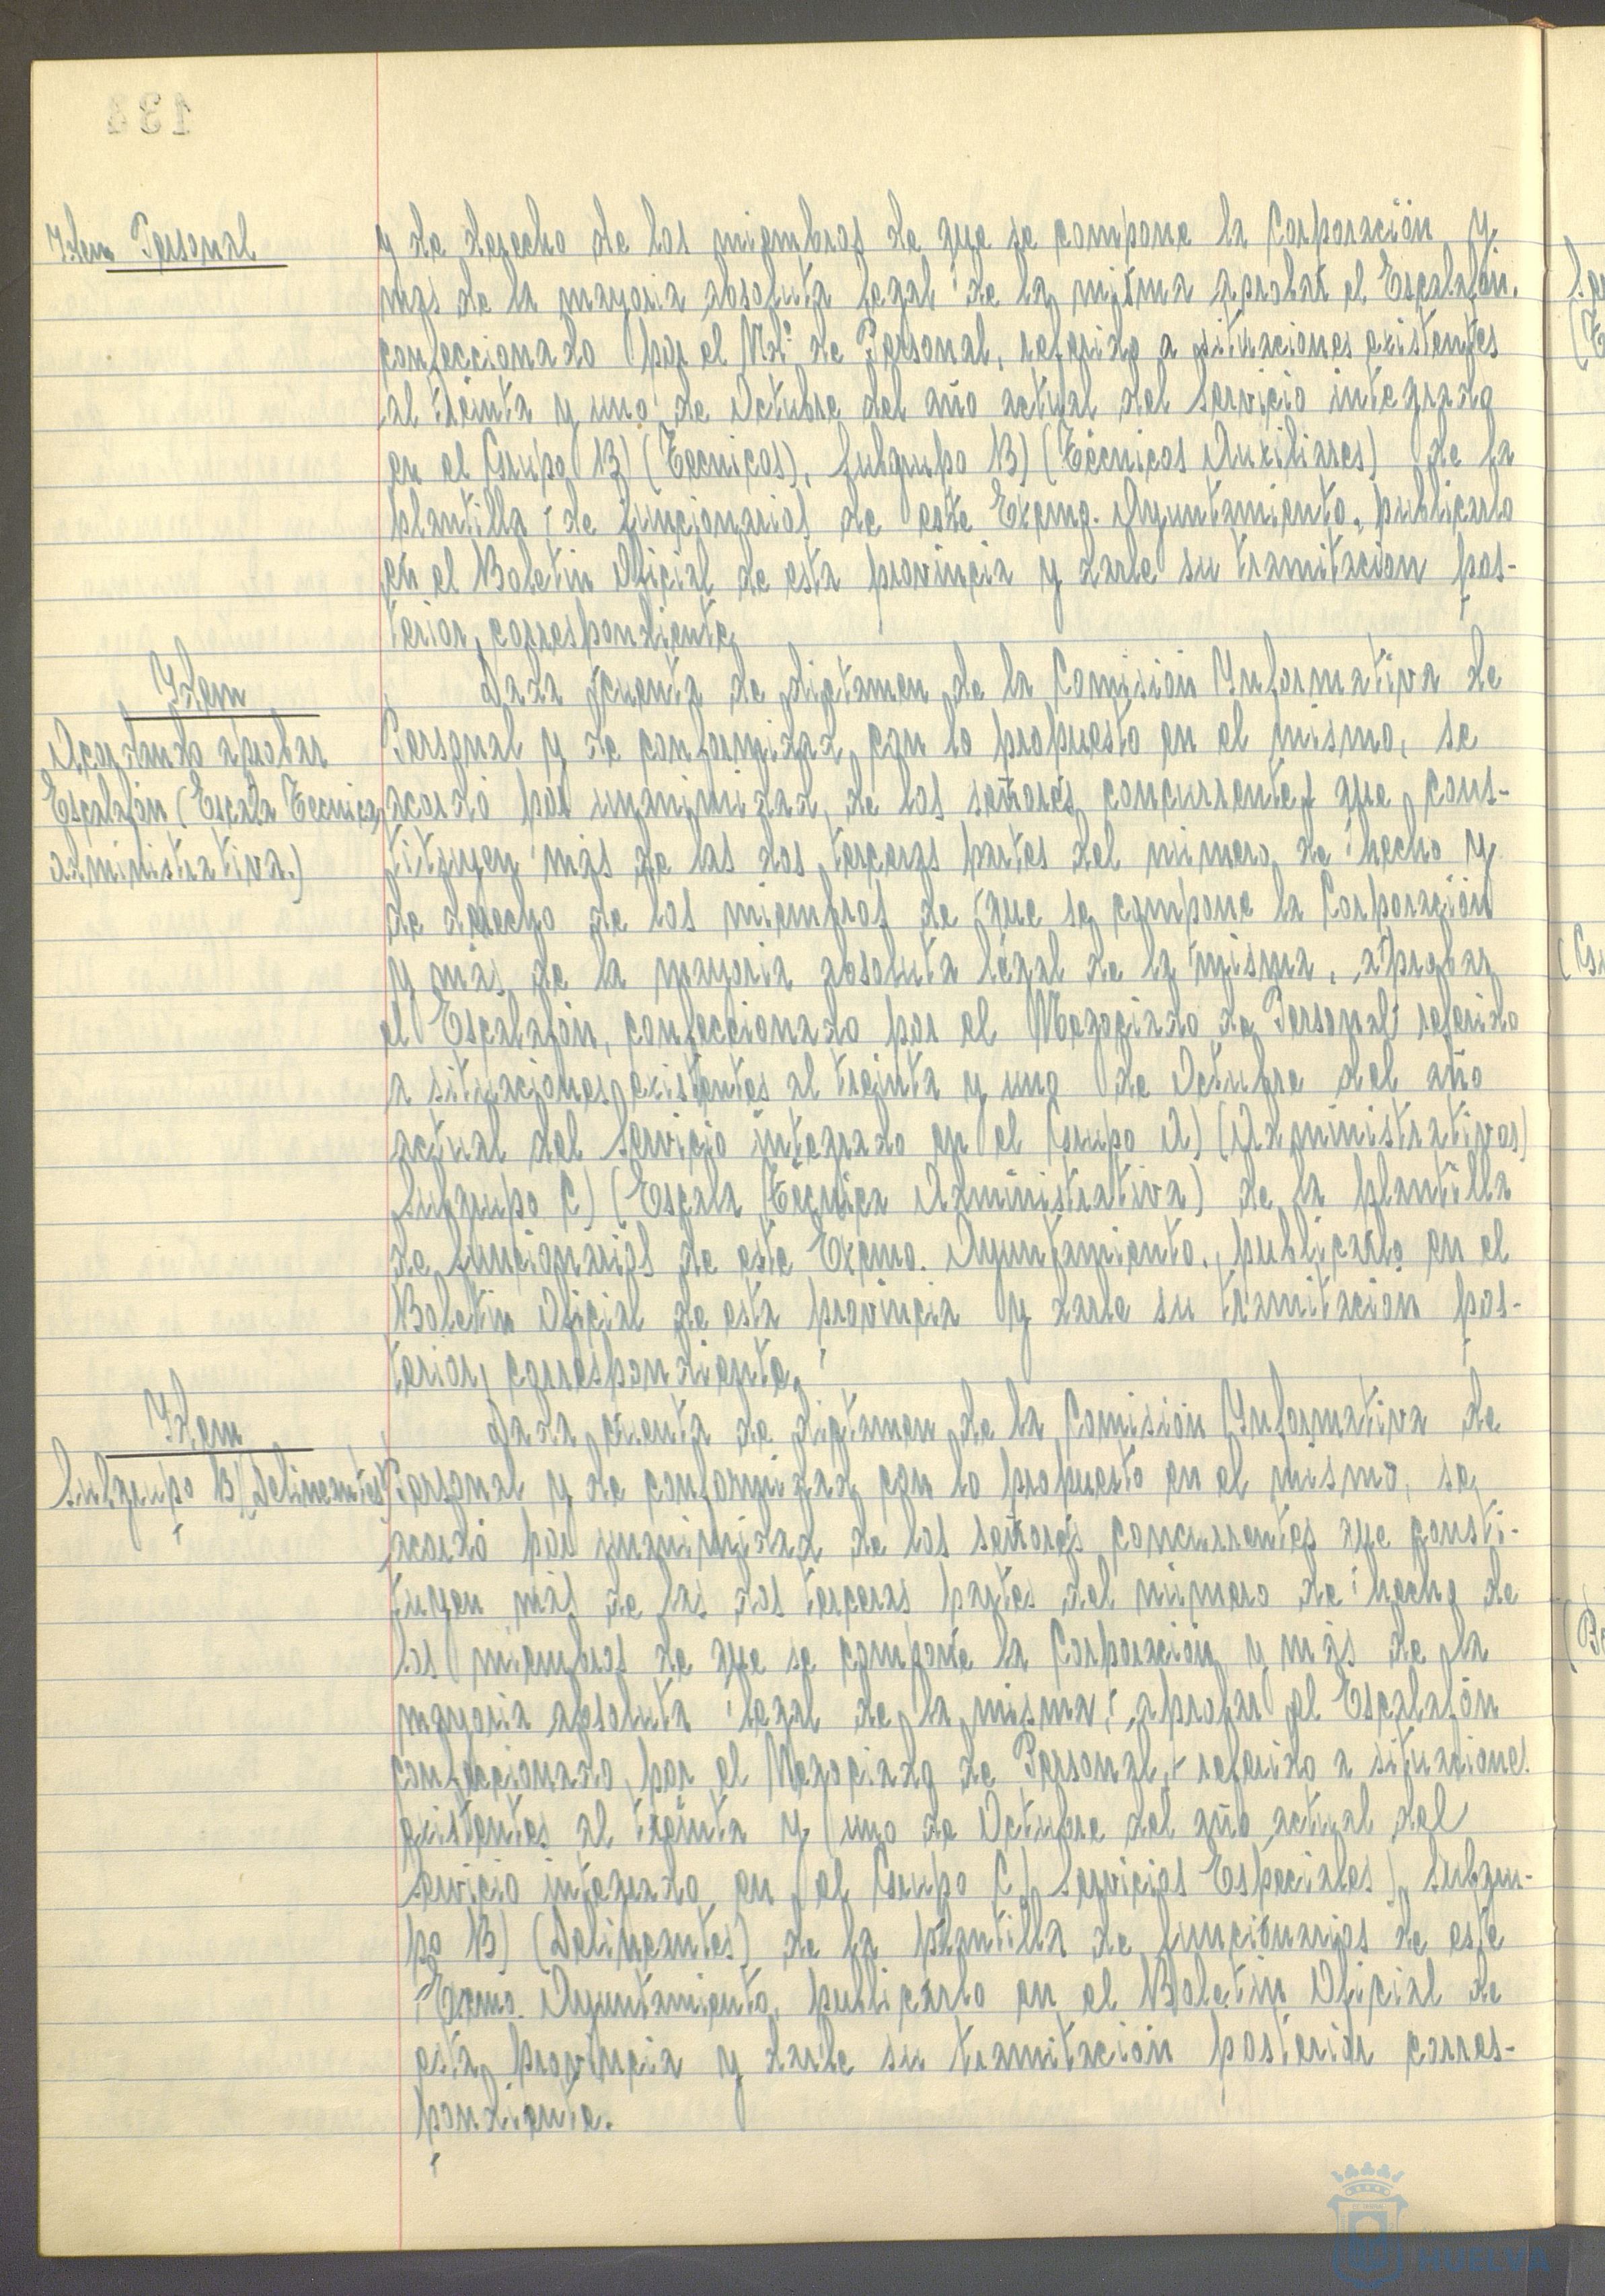 134
Idem Personal
y de derecho de los miembros de que se compone la Corporación y
más de la mayoria absoluta legal de la misma aprobar el Escalafón,
confeccionado por el Ndº de Personal, referido a situaciones existentes
al treinta y uno de Octubre del año actual del servicio integrado
en el Grupo B) (Tecnicos), Subgrupo B) (Técnicos Auxiliares) de la
plantilla de funcionarios de este Excmo. Ayuntamiento, publicarlo
en el Boletin Oficial de esta provincia y darle su tramitacion pos-
terior, correspondiente.
Idem
Acordando aprobar
Escalafón (Escala Tecnica
administrativa.)
Dada cuenta de dictamen de la Comisión Informativa de
Personal y de conformidad con lo propuesto en el mismo, se
acordó por unanimidad, de los señores concurrentes que cons-
tituyen más de las dos terceras partes del número de hecho y
de derecho de los miembros de que se compone la Corporación
y más de la mayoria absoluta legal de la misma, aprobar
el Escalafón, confeccionado por el Negociado de Personal referido
a situaciones existentes al treinta y uno de Octubre del año
actual del servicio integrado en el Grupo A) (Administrativos)
Subgrupo C) (Escala Técnica Administrativa) de la plantilla
de funcionarios de este Excmo. Ayuntamiento, publicarlo en el
Boletin Oficial de esta provincia y darle su tramitación pos-
terior, correspondiente.
Idem
Subgrupo B) (Delineantes)
Dada cuenta de dictamen de la Comisión Informativa de
Personal y de conformidad con lo propuesto en el mismo, se
acordó por unanimidad de los señores concurrentes que consti-
tuyen más de las dos terceras partes del número de hecho de
los miembros de que se compone la Corporación y más de la
mayoria absoluta legal de la misma, aprobar el Escalafón
confeccionado por el Negociado de Personal, referido a situaciones
existentes al treinta y uno de Octubre del año actual del
servicio integrado en el Grupo C) Servicios Especiales) Subgru-
po B) (Delineantes) de la plantilla de funcionarios de este
Excmo. Ayuntamiento, publicarlo en el Boletin Oficial de
esta provincia y darle su tramitación posterior corres-
pondiente.
HUELVA